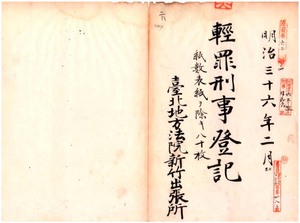 明治三十六年二月
輕罪刑事登記
紙數表紙ヲ除キ八十枚
臺北地方法院新竹出張所